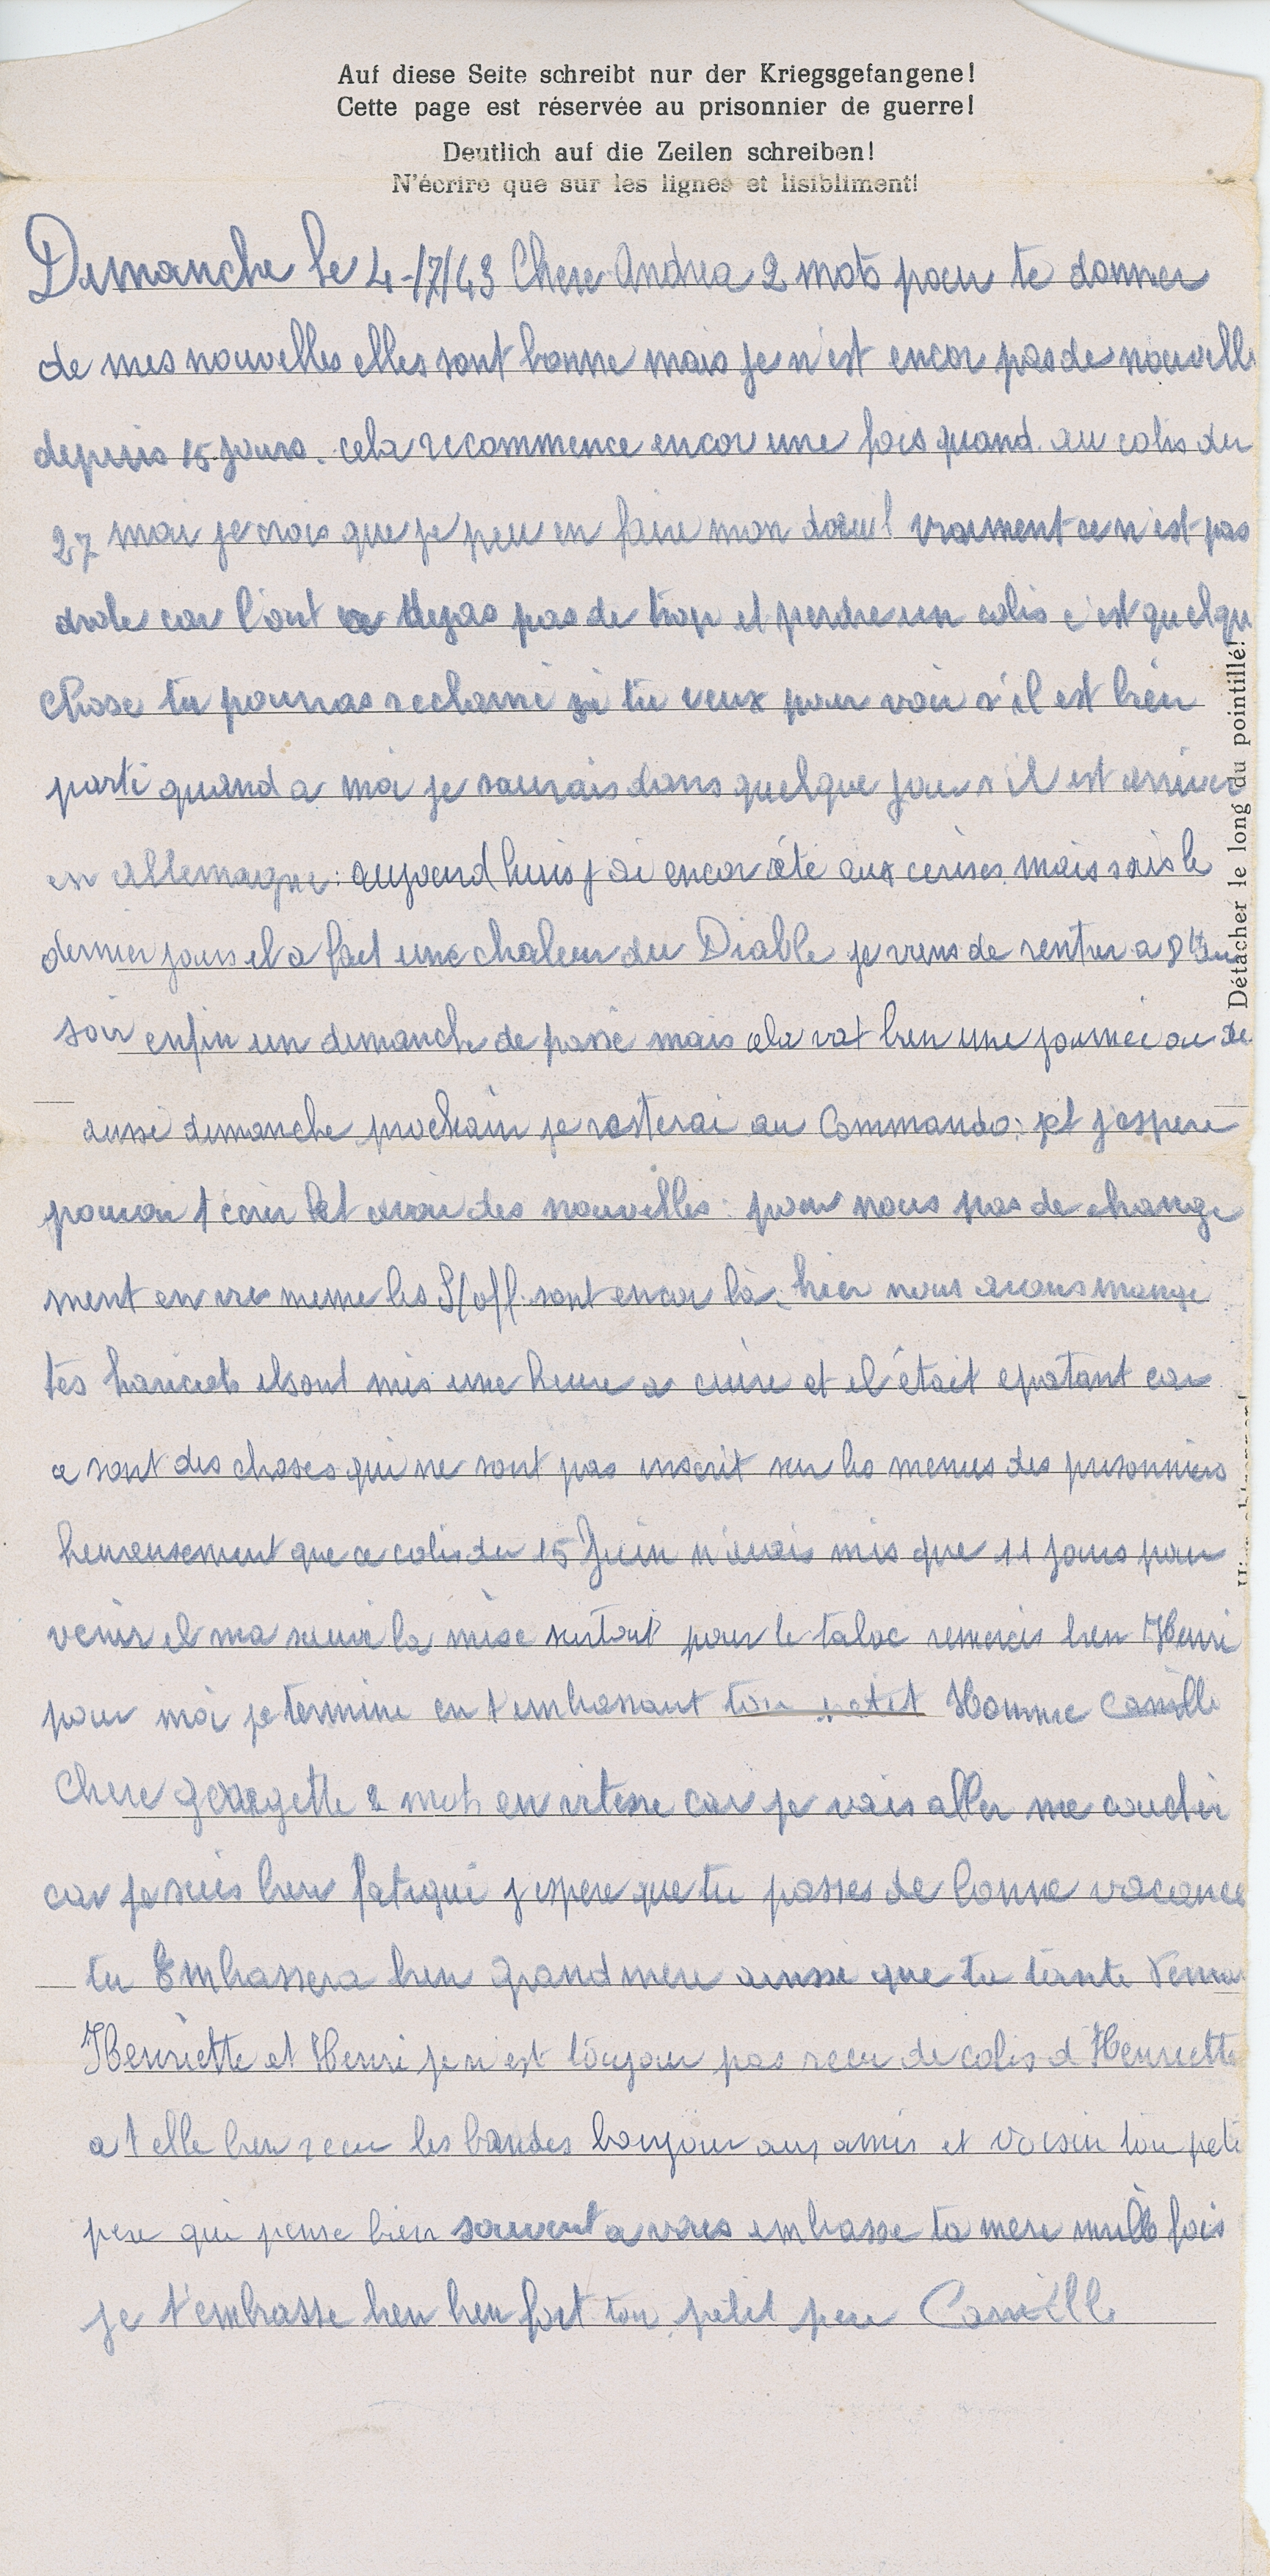 Auf diese Seite schreibt nur der Kriegsgefangene!
Cette page est réservée au prisonnier de guerre!
Deutlich auf die Zeilen schreiben!
N'écrire que sur les lignes et lisibliment!
Dimanche le 4-/7/43 Chere Andrea 2 mots pour te donner
de mes nouvelles elles sont bonne mais je n'est encor pas de nouvelle
depuis 15 jours. cela recommence encor une fois quand au colis du
27 mai je crois que je peu en faire mon doeuil vraiment ce n'est pas
drole car l'ont a deja pas de trop et perdre un colis c'est quelqu
chose tu pourras reclamé si tu veux pour voir s'il est bien
parti quand a moi je saurais dans quelque jour s'il est arriver
en Allemagne: aujourd huis j ai encor été aux cerises mais sais le
dernier jours il a fait une chaleur du Diable je viens de rentrer a 8 h du
soir enfin un dimanche de passé mais cela vat bien une journée ou de
ausse dimanche prochain je resterai au Commando: et j'espere
pouvoir t ecrir et avoir des nouvelles: pour nous pas de change
ment en vue meme les S/off. sont encor là. hier nous avons mangé
tes haricots ils ont mis une heure a cuire et il était epatant car
ce sont des choses qui ne sont pas inscrit sur les menus des prisonniers
heureusement que ce colis du 15 Juin n'avais mis que 11 jours pour
venir il ma sauvé la mise surtout pour le tabac remercis bien Henri
pour moi je termine en t embrassant ton petit Homme Camille
Chere georgette 2 mots en vitesse car je vais aller me coucher
car je suis bien fatigué j espere que tu passes de bonne vacance
tu Embrassera bien grand mere ainsse que ta tante
Henriette et Henri je n'est toujour pas recu de colis d'Henriette
a t elle bien recu les bandes bonjour aux amis et voisin ton peti
pere qui pense bien souvent a vous embrasse ta mere mille fois
je t'embrasse bien bien fort ton petit pere Camille
Détacher le long du pointillé!